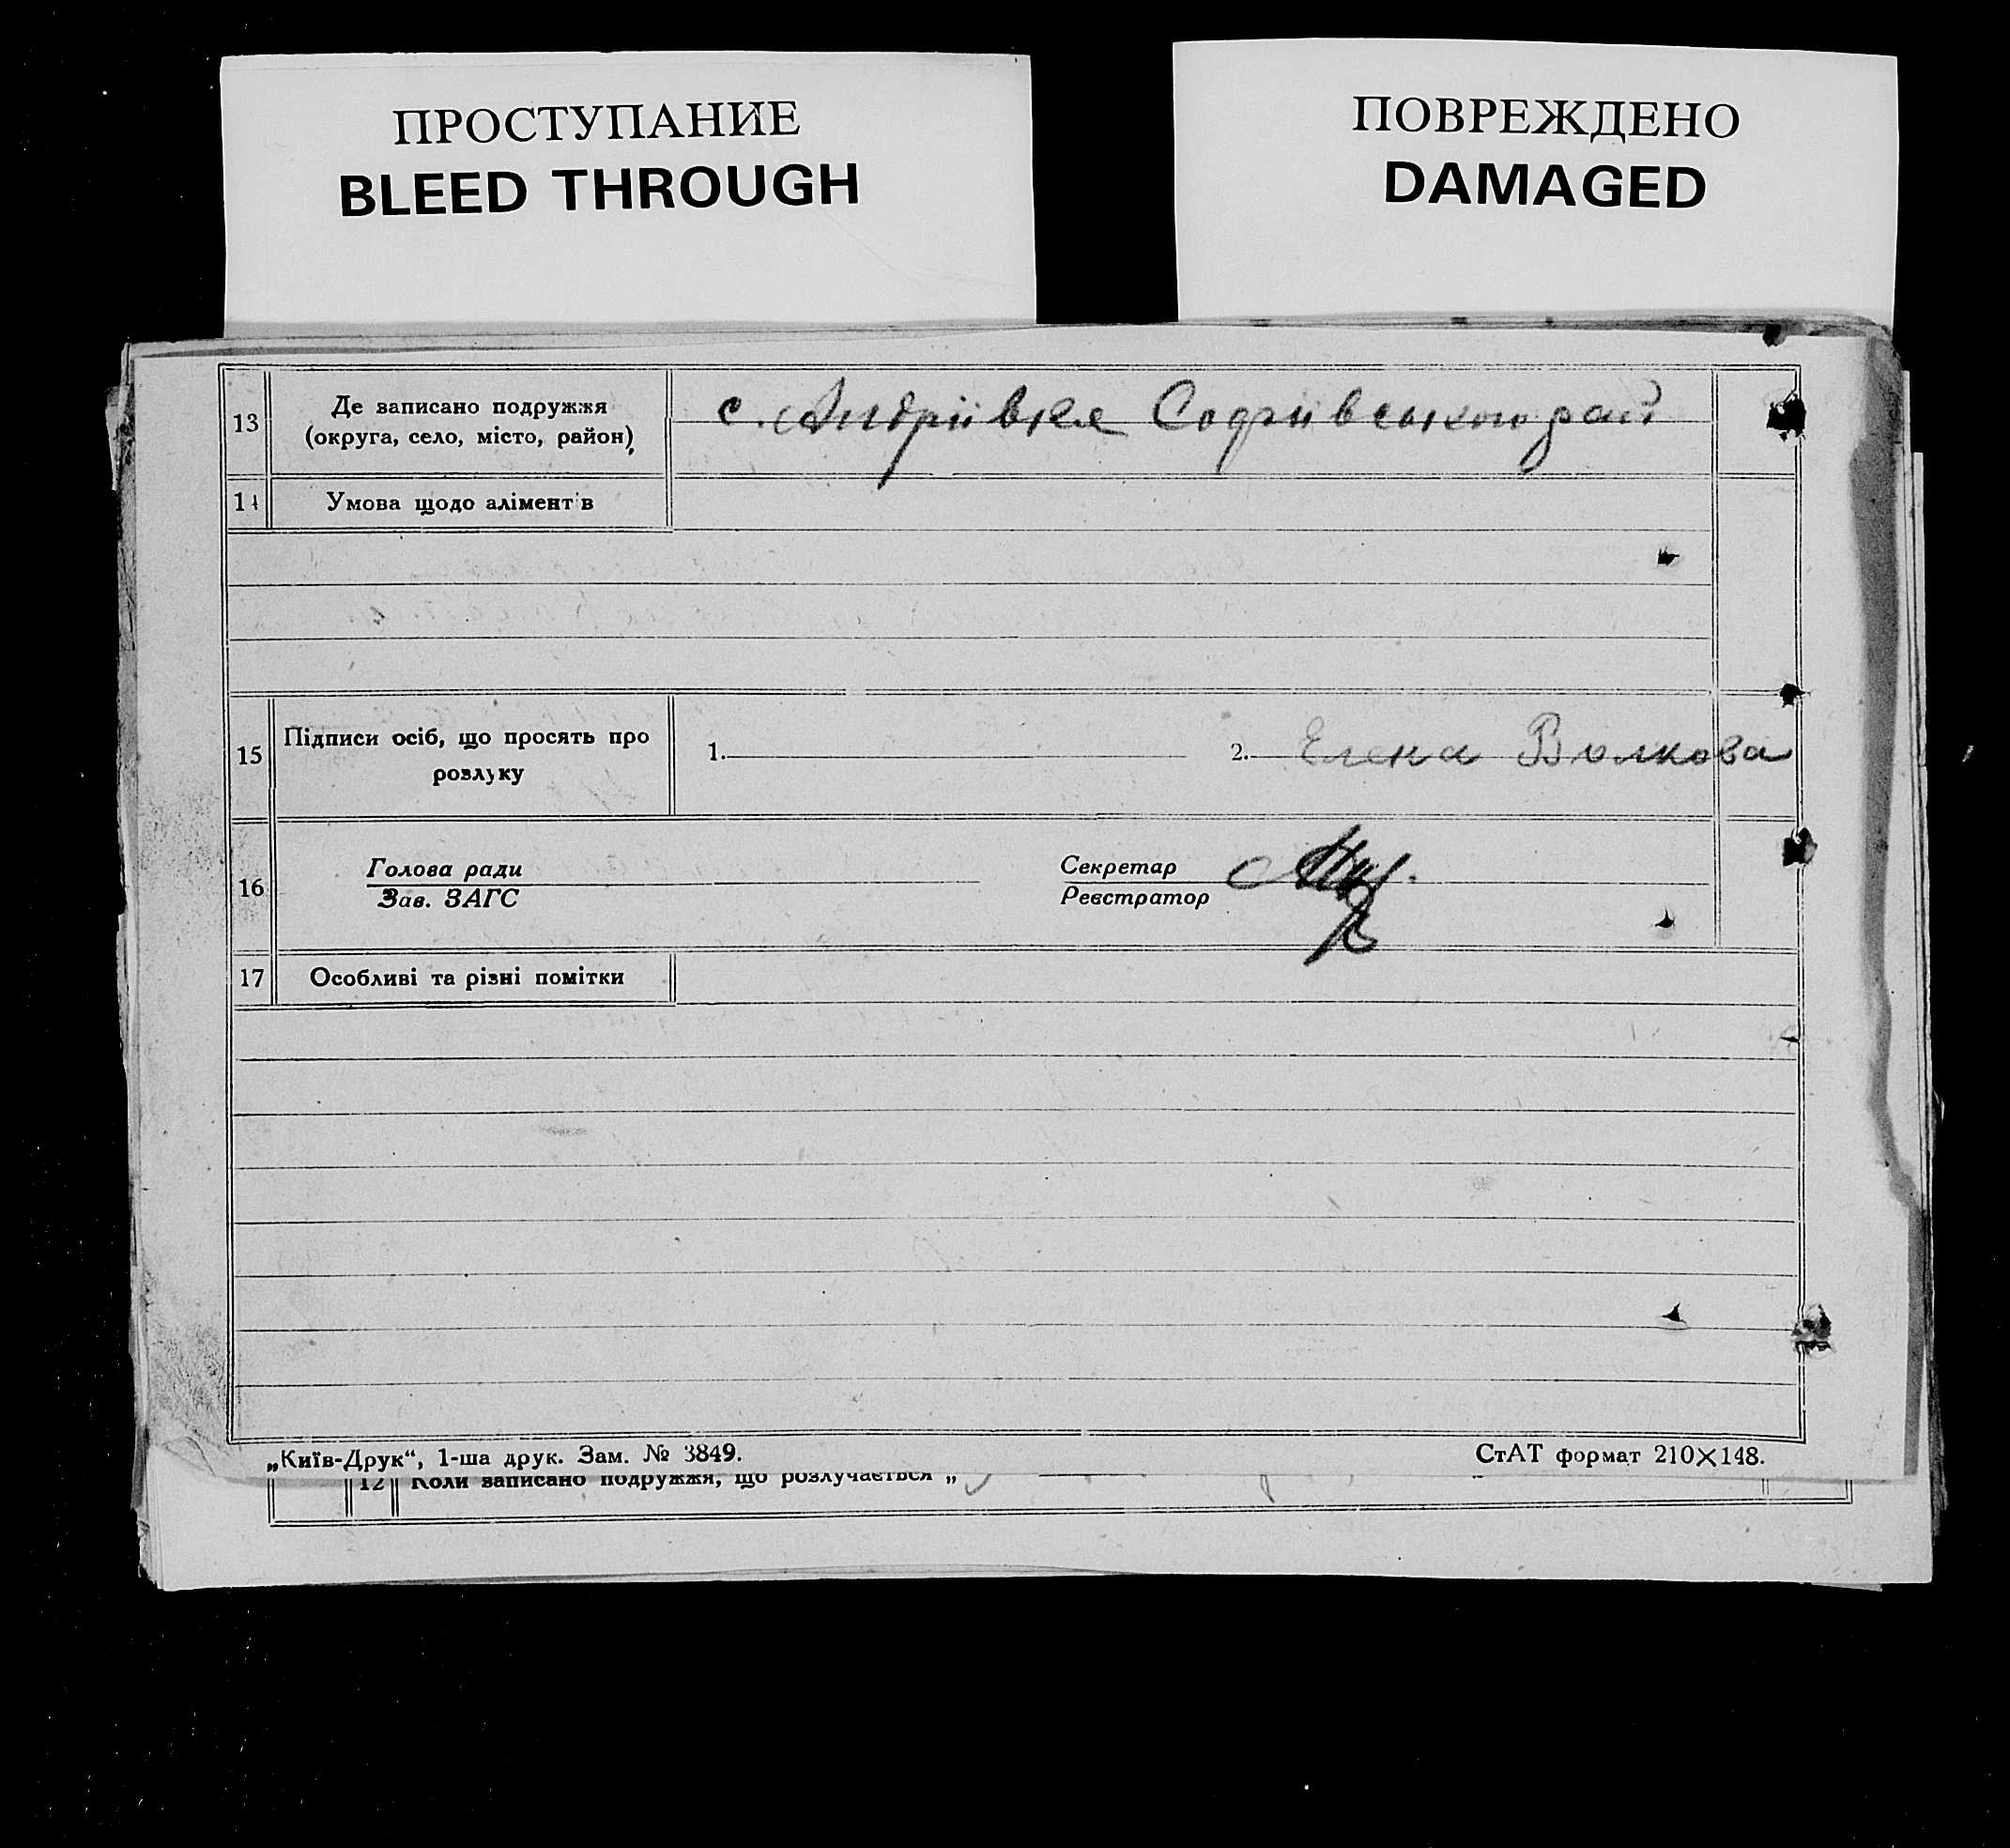 ПРОСТУПАНИЕ
BLEED THROUGH
ПОВРЕЖДЕНО
DAMAGED
13 Де записано подружжя
(округа, село, місто, район)
с. Андріївка Софіївського рай
14 Умова щодо аліментів
15 Підписи осіб, що просять про
розлуку
1. 2. Елена Волкова
16 Голова ради
Зав. ЗАГС
Секретар
Реєстратор
17 Особливі та різні помітки
„Київ-Друк“, 1-ша друк. Зам. № 3849. СтАТ формат 210×148.
12 Коли записано подружжя, що розлучається „